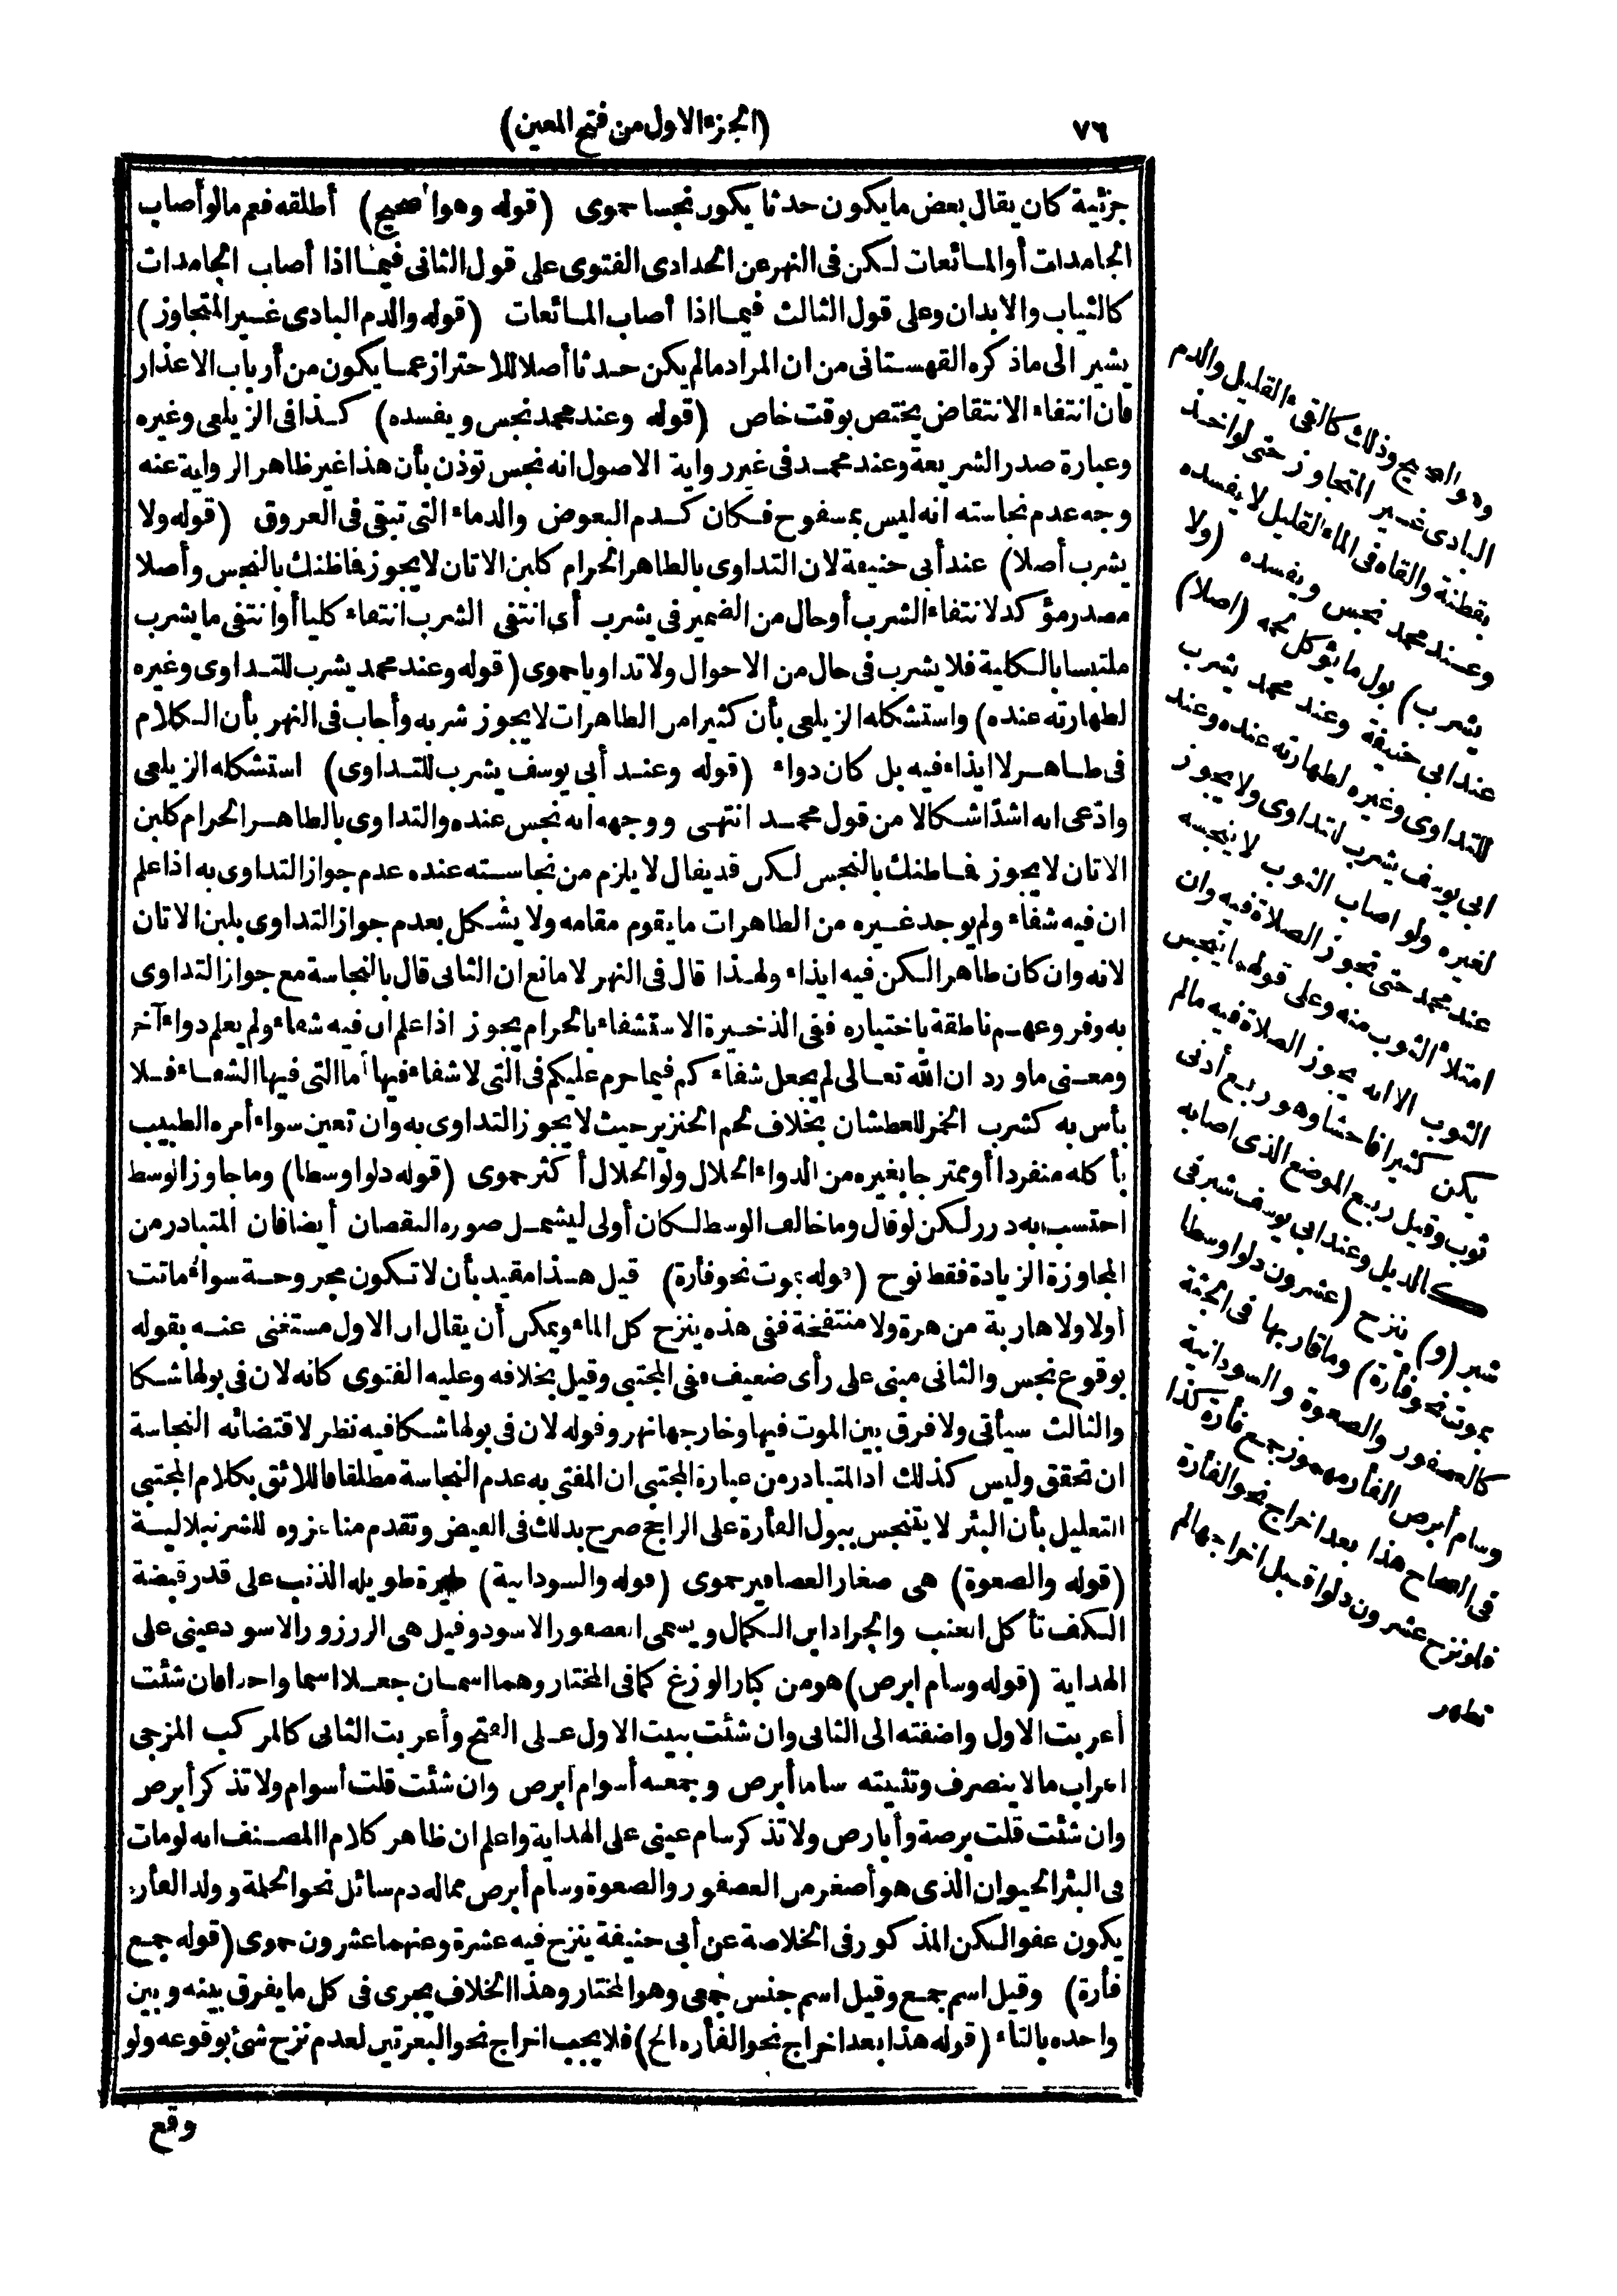 ٧٦
(الجزء الاول من فتح المعين)
جزئية كان يقال بعض ما يكون حدثا يكون نجسا حموى (قوله وهو الصحيح) أطلقه فعم ما لو أصاب
الجامدات أو المائعات لكن فى النهر عن الحدادى الفتوى على قول الثانى فيما اذا أصاب الجامدات
كالثياب والابدان وعلى قول الثالث فيما اذا أصاب المائعات (قوله والدم البادى غير المتجاوز)
يشير الى ما ذكره القهستانى من ان المراد ما لم يكن حدثا أصلا للاحتراز عما يكون من أرباب الاعذار
فان انتفاء الانتقاض يختص بوقت خاص (قوله وعند محمد نجس ويفسده) كذا فى الزيلعى وغيره
وعبارة صدر الشريعة وعند محمد فى غير رواية الاصول انه نجس تؤذن بأن هذا غير ظاهر الرواية عنه
وجه عدم نجاسته انه ليس بمسفوح فكان كدم البعوض والدماء التى تبقى فى العروق (قوله ولا
يشرب أصلا) عند أبى حنيفة لان التداوى بالطاهر الحرام كلبن الاتان لا يجوز فاظنك بالنجس وأصلا
مصدر مؤكد لانتفاء الشرب أو حال من الضمير فى يشرب أى انتفى الشرب انتفاء كليا أو انتفى ما يشرب
ملتبسا بالكلية فلا يشرب فى حال من الاحوال ولا تداويا حموى (قوله وعند محمد يشرب للتداوى وغيره
لطهارته عنده) واستشكله الزيلعى بأن كثيرا من الطاهرات لا يجوز شربه وأجاب فى النهر بأن الكلام
فى طاهر لا ايذاء فيه بل كان دواء (قوله وعند أبى يوسف يشرب للتداوى) استشكله الزيلعى
وادّعى انه اشدّ اشكالا من قول محمد انتهى ووجهه انه نجس عنده والتداوى بالطاهر الحرام كلبن
الاتان لا يجوز فاظنك بالنجس لكن قد يقال لا يلزم من نجاسته عنده عدم جواز التداوى به اذا علم
ان فيه شفاء ولم يوجد غيره من الطاهرات ما يقوم مقامه ولا يشكل بعدم جواز التداوى بلبن الاتان
لانه وان كان طاهرا لكن فيه ايذاء ولهذا قال فى النهر لا مانع ان الثانى قال بالنجاسة مع جواز التداوى
به وفروعهم ناطقة باختياره ففى الذخيرة الاستشفاء بالحرام يجوز اذا علم ان فيه شفاء ولم يعلم دواء آخر
ومعنى ما ورد ان الله تعالى لم يجعل شفاءكم فيما حرم عليكم فى التى لا شفاء فيها أما التى فيها الشفاء فلا
بأس به كشرب الخمر للعطشان بخلاف لحم الخنزير حيث لا يجوز التداوى به وان تعين سواء أمره الطبيب
بأكله منفردا أو ممتزجا بغيره من الدواء الحلال ولو الحلال أكثر حموى (قوله دلوا وسطا) وما جاوز الوسط
احتسب به درر لكن لو قال وما خالف الوسط لكان أولى ليشمل صورة النقصان أيضا فان المتبادر من
المجاوزة الزيادة فقط نوح (قوله بموت نحو فأرة) قيل هذا مقيد بأن لا تكون مجروحة سواء ماتت
أولا ولا هاربة من هرة ولا منتفخة ففى هذه ينزح كل الماء ويمكن أن يقال ان الاول مستغنى عنه بقوله
بوقوع نجس والثانى مبنى على رأى ضعيف ففى المجتبى وقيل بخلافه وعليه الفتوى كانه لان فى بولها شكا
والثالث سيأتى ولا فرق بين الموت فيها وخارجها نهر وقوله لان فى بولها شكا فيه نظر لاقتضائه النجاسة
ان تحقق وليس كذلك اذ المتبادر من عبارة المجتبى ان المفتى به عدم النجاسة مطلقا فاللائق بكلام المجتبى
التعليل بأن البئر لا يتنجس ببول الفأرة على الراجح صرح بذلك فى الفيض وتقدم منا عزوه للشرنبلالية
(قوله والصعوة) هى صغار العصافير حموى (قوله والسودانية) طيرة طويلة الذنب على قدر قبضة
الكف تأكل العنب والجراد ابن الكمال ويسمى العصفور الاسود وقيل هى الزرزور الاسود عينى على
الهداية (قوله وسام ابرص) هو من كبار الوزغ كما فى المختار وهما اسمان جعلا اسما واحدا فان شئت
أعربت الاول واضفته الى الثانى وان شئت بنيت الاول على الفتح وأعربت الثانى كالمركب المزجى
اعراب ما لا ينصرف وتثنيته ساما أبرص وجمعه أسوام أبرص وان شئت قلت أسوام ولا تذكر أبرص
وان شئت قلت برصة وأبارص ولا تذكر سام عينى على الهداية واعلم ان ظاهر كلام المصنف انه لو مات
فى البئر الحيوان الذى هو أصغر من العصفور والصعوة وسام أبرص مما له دم سائل نحو الحلمة وولد الفأرة
يكون عفوا لكن المذكور فى الخلاصة عن أبى حنيفة ينزح فيه عشرة وعنهما عشرون حموى (قوله جمع
فأرة) وقيل اسم جمع وقيل اسم جنس جمعى وهو المختار وهذا الخلاف يجرى فى كل ما يفرق بينه وبين
واحده بالتاء (قوله هذا بعد اخراج نحو الفأرة الخ) فلا يجب اخراج نحو البعرتين لعدم نزح شئ بوقوعه ولو
وقع
وهو الصحيح وذلك كالقىء القليل والدم
البادى غير المتجاوز حتى لو اخذ
بقطنة والقاه فى الماء القليل لا يفسده
وعند محمد نجس ويفسده (ولا
يشرب) بول ما يؤكل لحمه (اصلا)
عند ابى حنيفة وعند محمد يشرب
للتداوى وغيره لطهارته عنده وعند
ابى يوسف يشرب لتداوى ولا يجوز
لغيره ولو اصاب الثوب لا ينجسه
عند محمد حتى تجوز الصلاة فيه وان
امتلأ الثوب منه وعلى قولهما ينجس
الثوب الا انه يجوز الصلاة فيه ما لم
يكن كثيرا فاحشا وهو ربع أدنى
ثوب وقيل ربع الموضع الذى اصابه
كالذيل وعند ابى يوسف شبر فى
شبر (و) ينزح (عشرون دلوا وسطا
بموت نحو فأرة) وما قاربها فى الجثة
كالعصفور والصعوة والسودانية
وسام أبرص الفأر مهموز جمع فأرة كذا
فى الصحاح هذا بعد اخراج نحو الفأرة
فلو نزح عشرون دلوا قبل اخراجها لم
تطهر